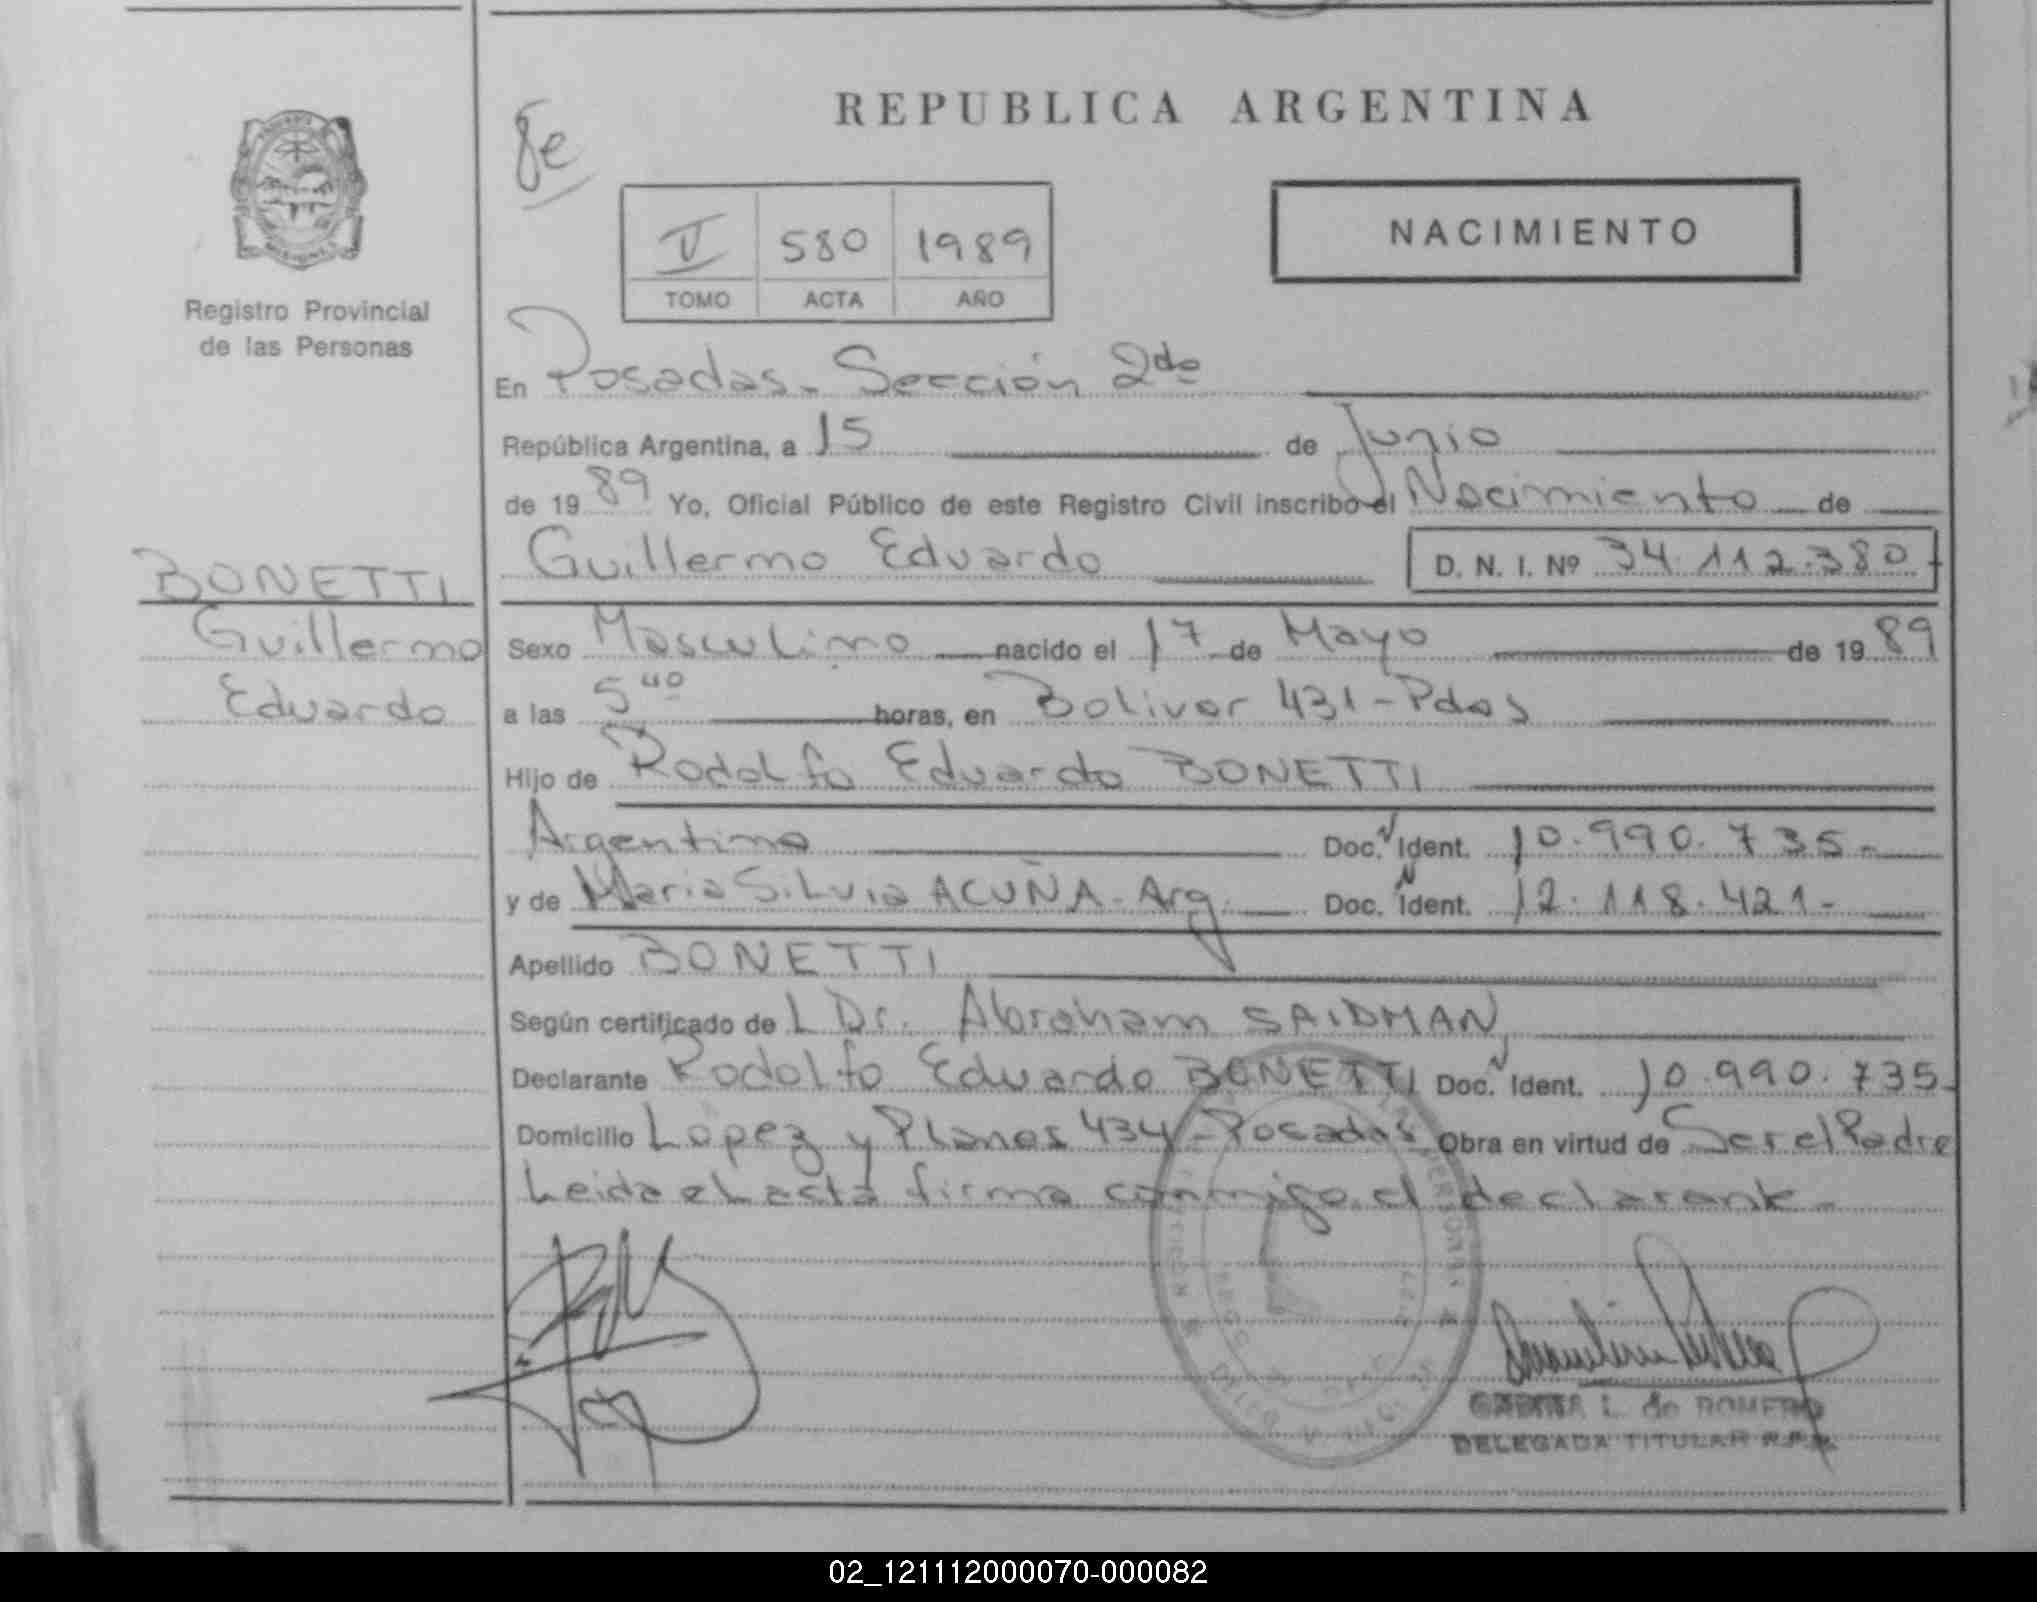 REPUBLICA ARGENTINA
NACIMIENTO
V 580 1989
TOMO ACTA AÑO
Registro Provincial
de las Personas
En Posadas - Sección 2da
República Argentina, a 15 de Junio
de 1989 Yo, Oficial Público de este Registro Civil inscribo el Nacimiento de
Guillermo Eduardo D. N. I. Nº 34.112.380
BONETTI
Guillermo
Eduardo
Sexo Masculino nacido el 17 de Mayo de 1989
a las 5 40 horas, en Bolivar 431 - Pdas
Hijo de Rodolfo Eduardo BONETTI
Argentino Doc. Ident. 10.990.735-
y de Maria Silvia ACUÑA - Arg. Doc. Ident. 12.118.421-
Apellido BONETTI
Según certificado del Dr. Abraham SAIDMAN
Declarante Rodolfo Eduardo BONETTI Doc. Ident. 10.990.735-
Domicilio Lopez y Planes 434 - Posadas Obra en virtud de Ser el Padre
Leida el acta firma conmigo el declarante -
L. de ROMERO
DELEGADA TITULAR R.P.P.
02_121112000070-000082